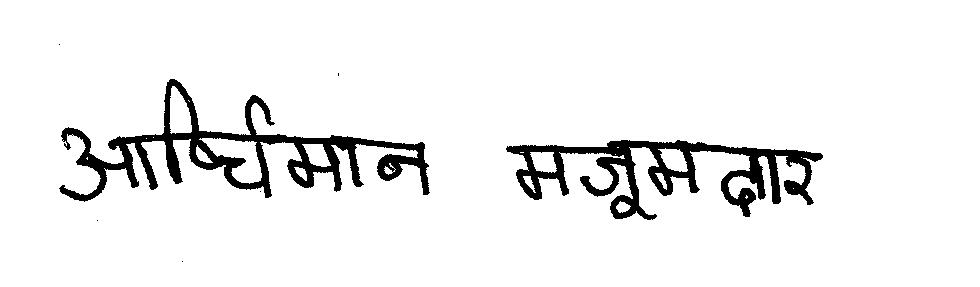 आर्ष्धिमान मजूमदार